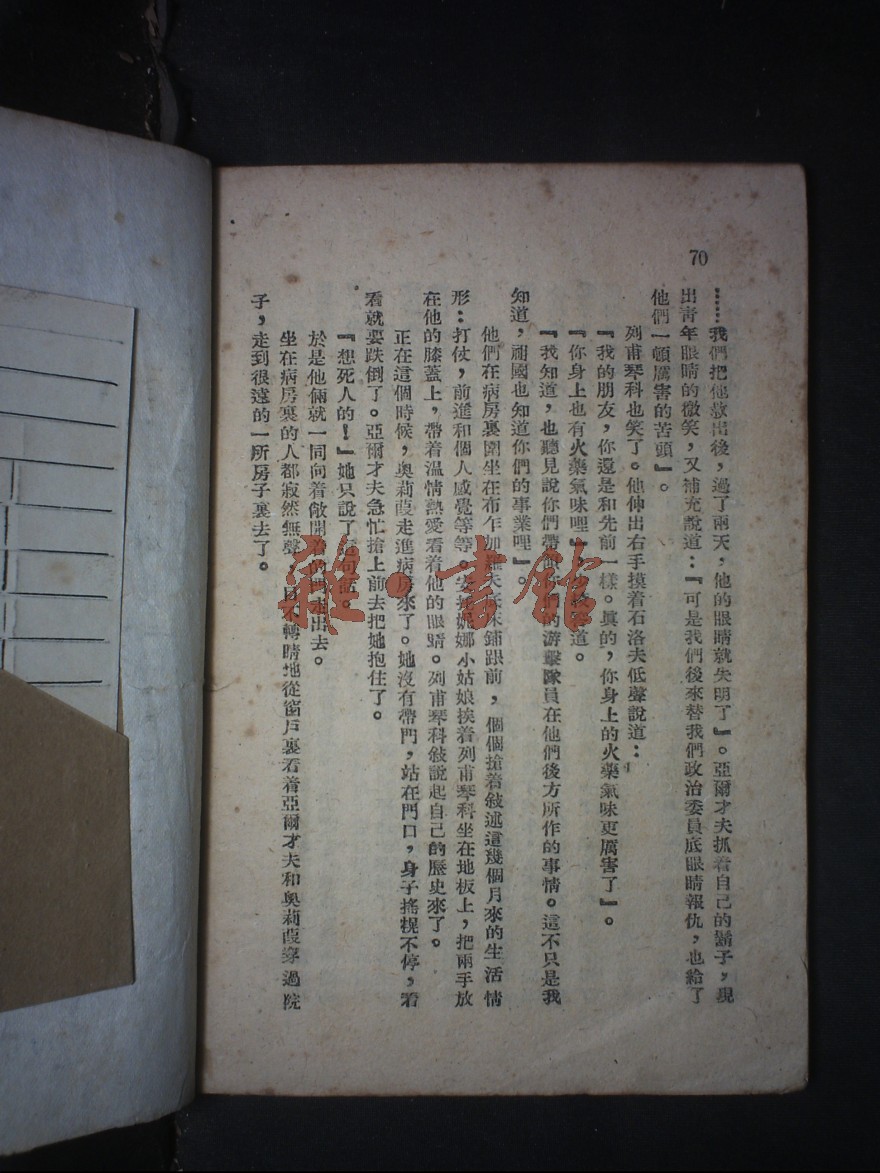 70
……我們把他救出後，過了兩天，他的眼睛就失明了』。亞爾才夫抓着自己的鬍子，現
出靑年眼睛的微笑，又補充說道：『可是我們後來替我們政治委員底眼睛報仇，也給了
他們一頓厲害的苦頭』。
列甫琴科也笑了。他伸出右手摸着石洛夫低聲說道：
『我的朋友，你還是和先前一樣。眞的，你身上的火藥氣味更厲害了』。
『你身上也有火藥氣味哩』，
道。
『我知道，也聽見說你們帶領你們的游擊隊員在他們後方所作的事情。這不只是我
知道，祖國也知道你們的事業哩』。
他們在病房裏圍坐在布乍加羅夫底床鋪跟前，個個搶着敍述這幾個月來的生活情
形：打仗，前進和個人感覺等等。安
妮娜小姑娘挨着列甫琴科坐在地板上，把兩手放
在他的膝蓋上，帶着溫情熱愛看着他的眼睛。列甫琴科敍說起自己的歷史來了。
正在這個時候，奧莉葭走進病房來了。她沒有帶門，站在門口，身子搖榥不停，看
看就要跌倒了。亞爾才夫急忙搶上前去把她抱住了。
『想死人的！』她只說了這句話。
於是他倆就一同向着敞開着的門走出去。
坐在病房裏的人都寂然無聲，目不轉睛地從窗戶裏看着亞爾才夫和奧莉葭穿過院
子，走到很遠的一所房子裏去了。
雜·書館